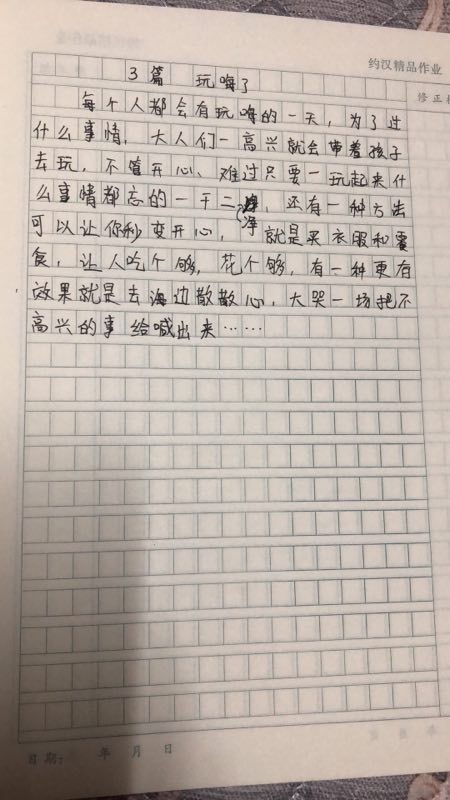 约汉精品作业
修正栏
3篇 玩嗨了
每个人都会有玩嗨的一天，为了过
什么事情，大人们一高兴就会带着孩子
去玩，不管开心、难过只要一玩起来什
么事情都忘的一干二净，还有一种方法
可以让你秒变开心，就是买衣服和零
食，让人吃个够，花个够，有一种更有
效果就是去海边散散心，大哭一场把不
高兴的事给喊出来……
日期： 年 月 日